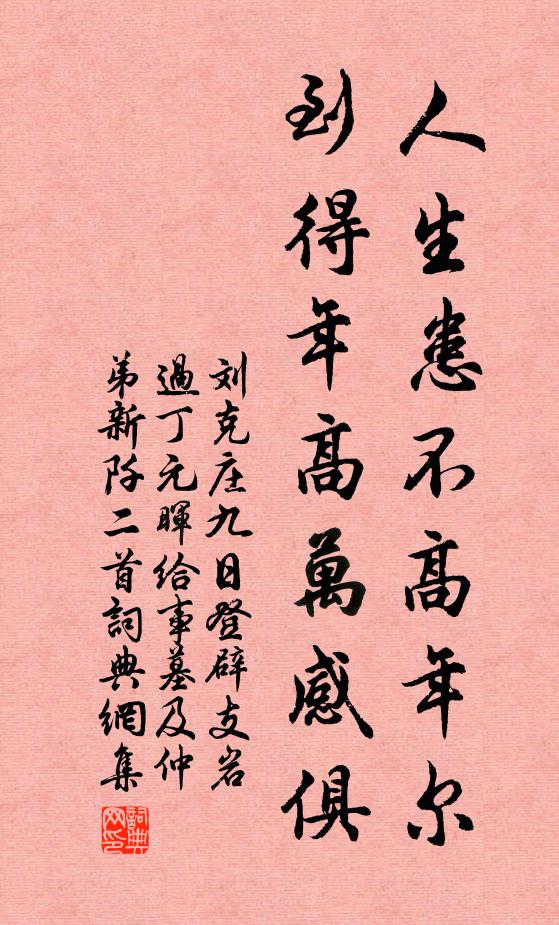 人生患不高年尔
到得年高萬感俱
刘克庄九日登辟支岩
過丁元暉给事墓及仲
弟新阡二首詞典網集
詞典网印